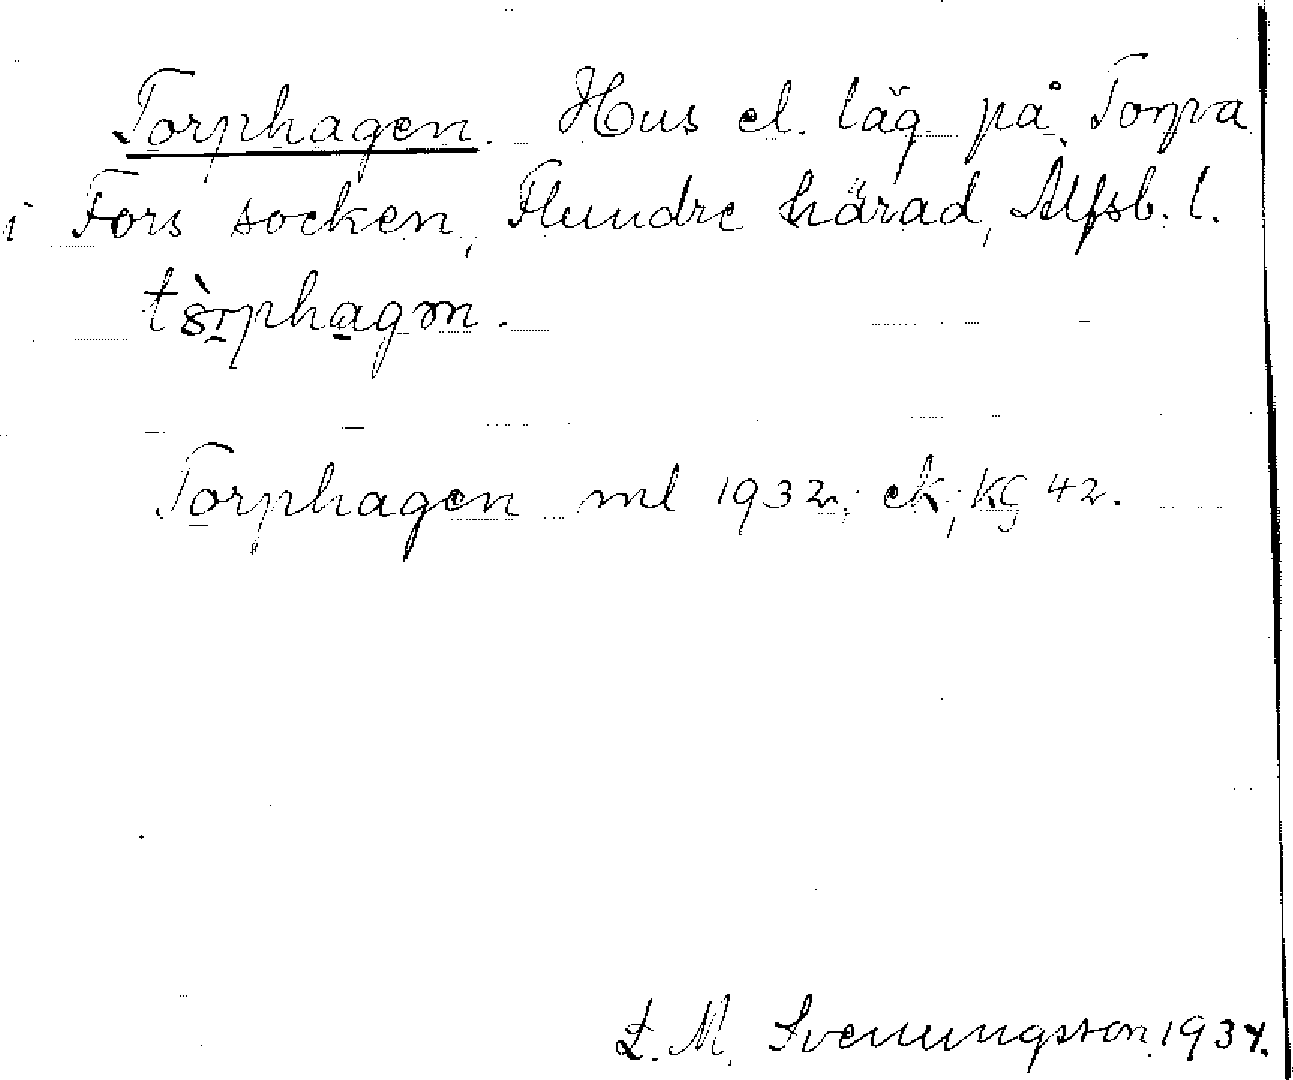 Torphagen. Hus el. läg på Torpa
i Fors socken, Flundre härad, Älfsb. l.
Torphagen ml 1932; ek; KG 42.
L. M. Svenungsson 1934.